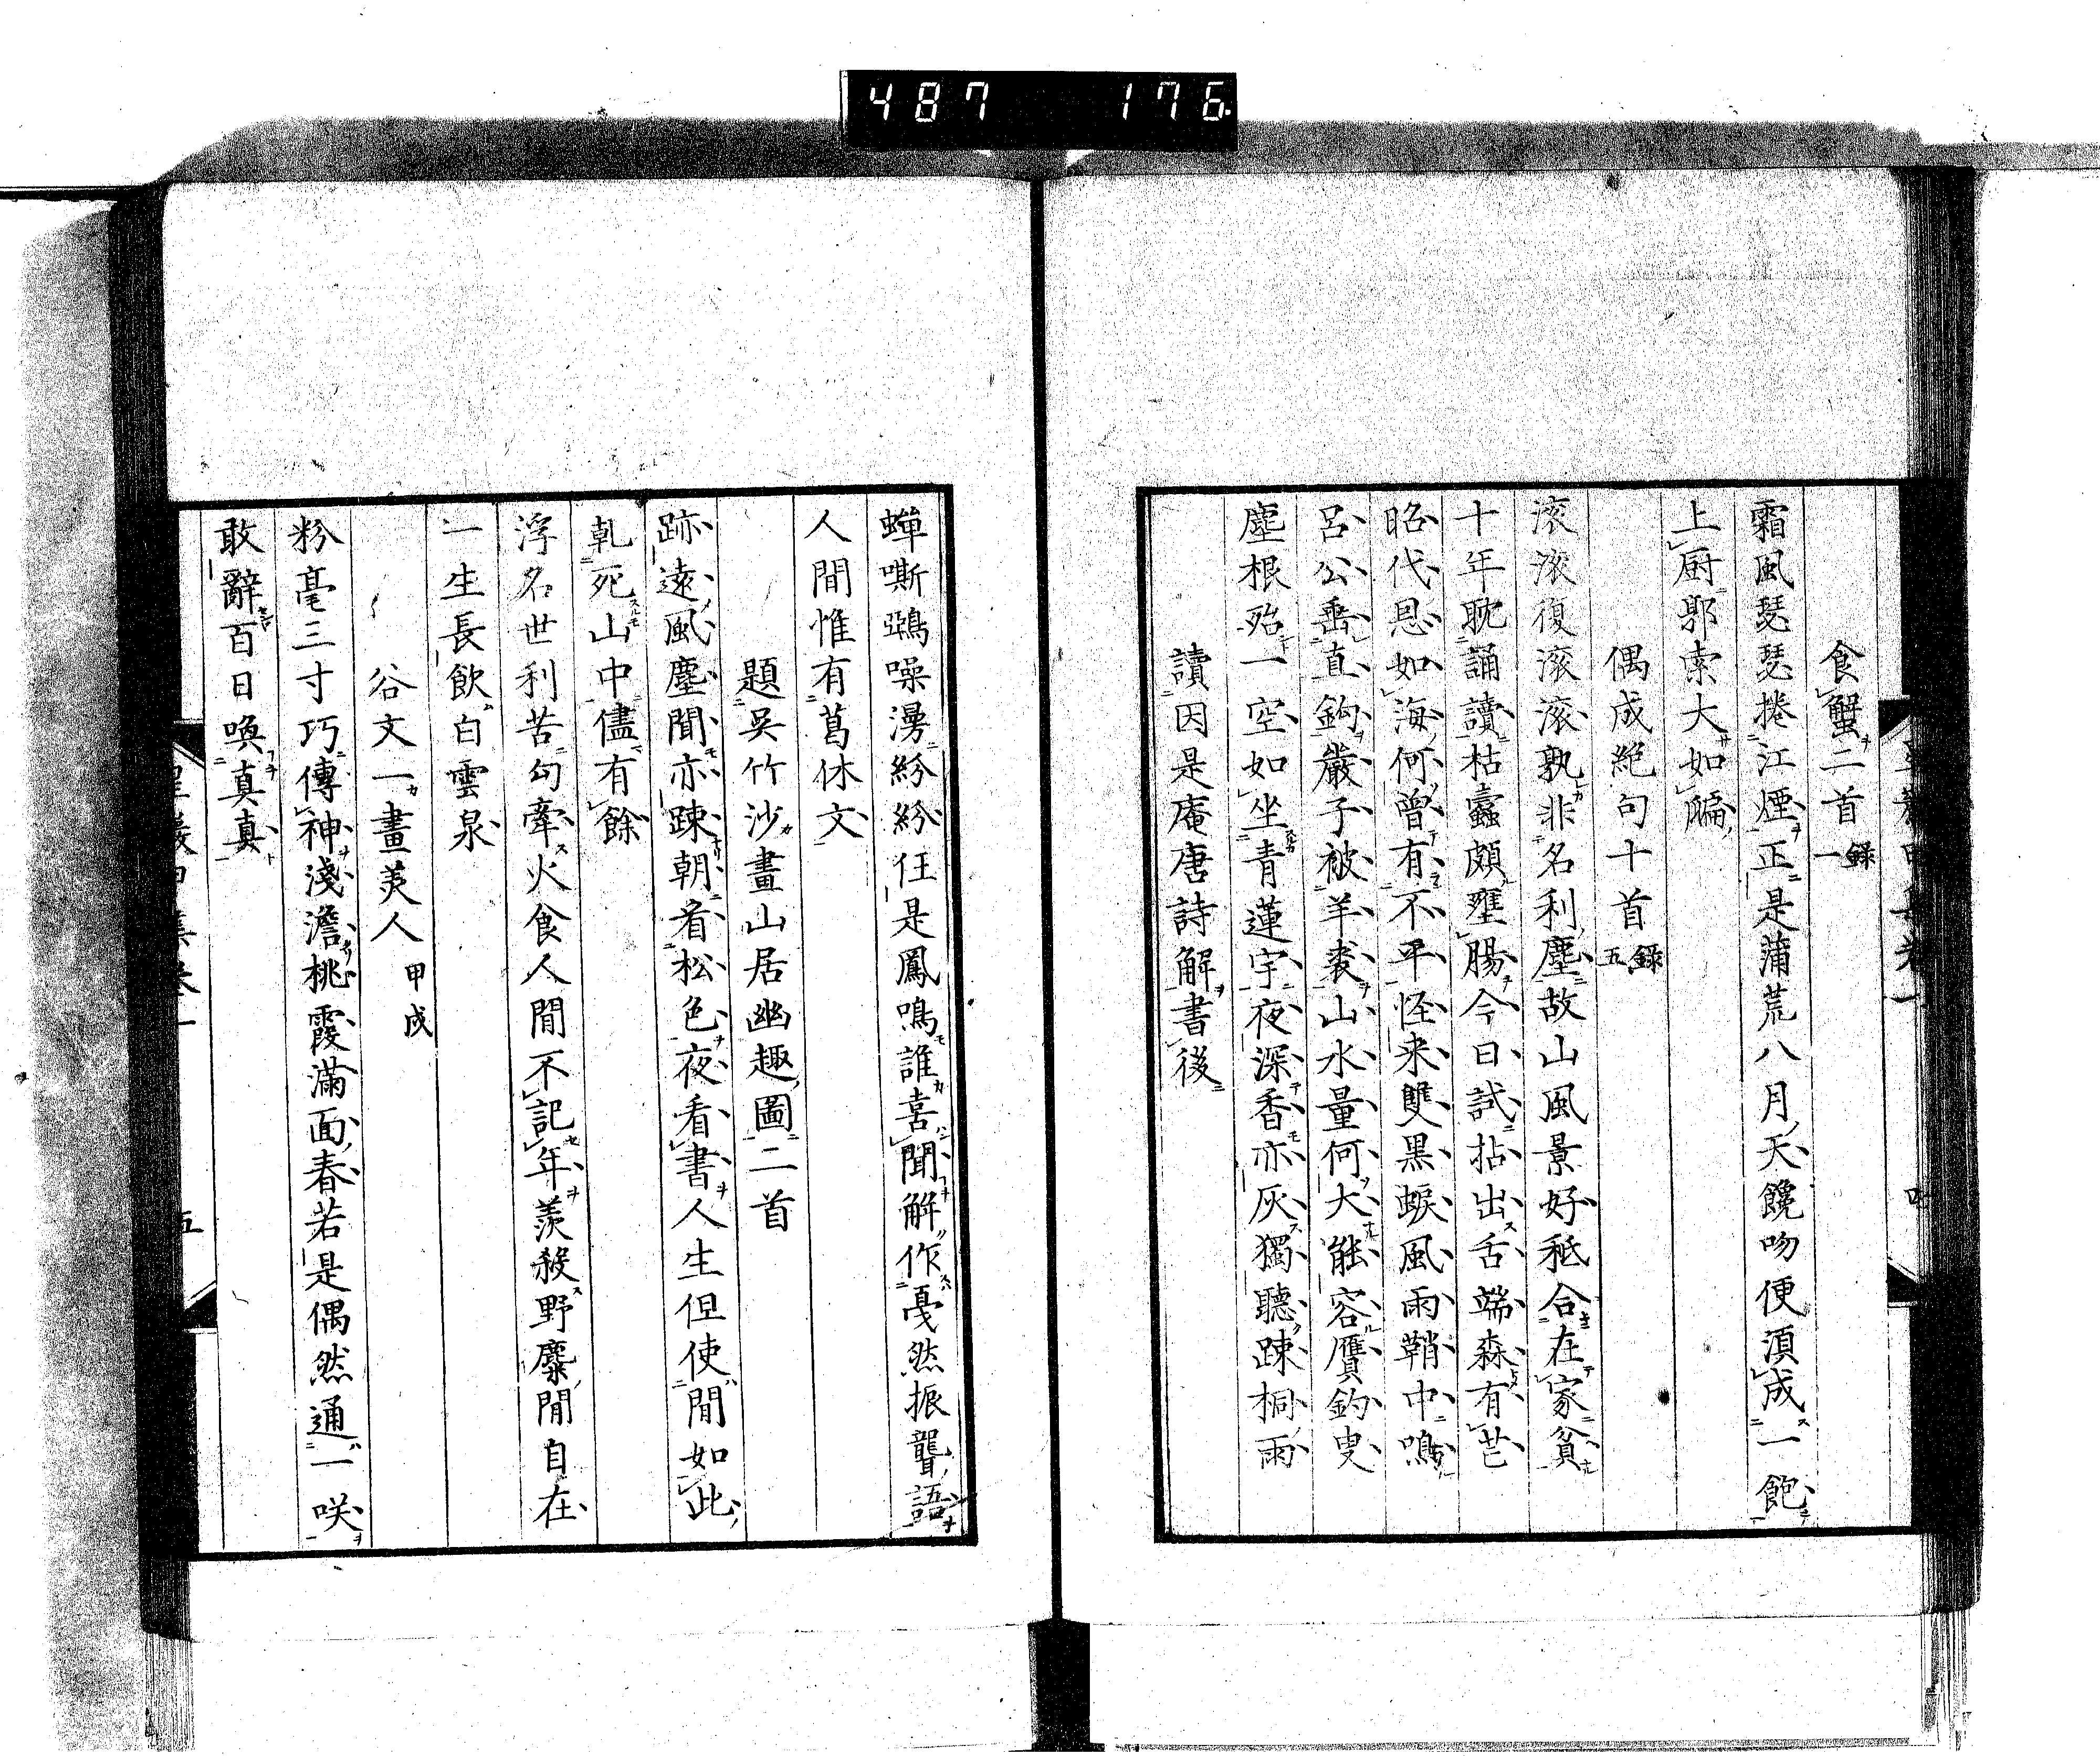 487 176
食蟹二首 錄一
霜風瑟瑟捲江煙正是蒲荒八月天饞吻便須成一飽
上厨郭索大如
偶成絕句十首 錄五
滚滚復滚滚孰非名利塵故山風景好秪合在家貧
十年耽誦讀枯蠹頗壅腸今日試拈出舌端森有芒
昭代恩如海何曽有不平怪来雙黒蜧風雨鞘中鳴
呂公垂直鈎嚴子被羊裘山水量何大能容贋釣叟
塵根殆一空如坐青蓮宇夜深香亦灰獨聽踈桐雨
讀因是庵唐詩解書後
蟬嘶鵶噪漫紛紛任是鳳鳴誰喜聞解作戞然振聾語
人間惟有葛休文
題吳竹沙畫山居幽趣圖二首
跡遠風塵間亦踈朝看松色夜看書人生但使間如此
乹死山中儘有餘
浮名世利苦勾牽火食人間不記年羡殺野麋閒自在
一生長飲白雲泉
谷文一畫羙人 甲戌
粉毫三寸巧傳神淺澹桃霞滿面春若是偶然通一咲
敢辭百日喚真真
五